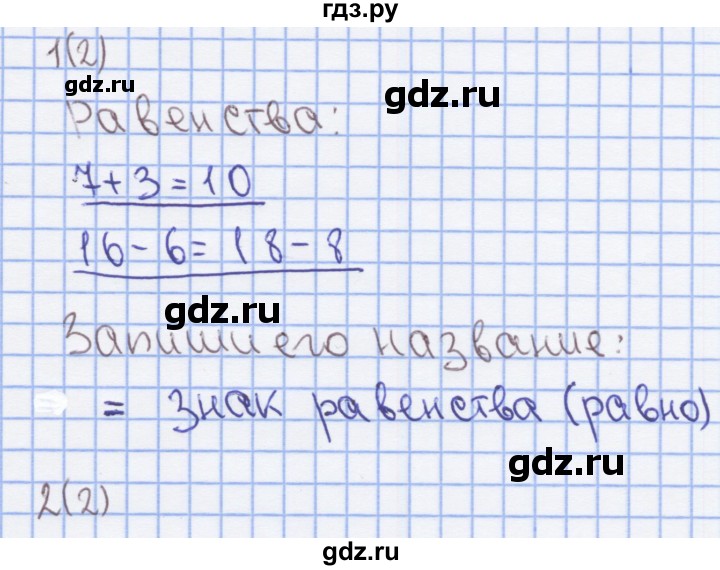 гдз.ру
1(2)
gdz.ru
gdz.ru
Равенства:
7+3=10
16-6=18-8
gdz.ru
Запиши его название:
= знак равенства (равно)
gdz.ru
2(2)
gdz.ru